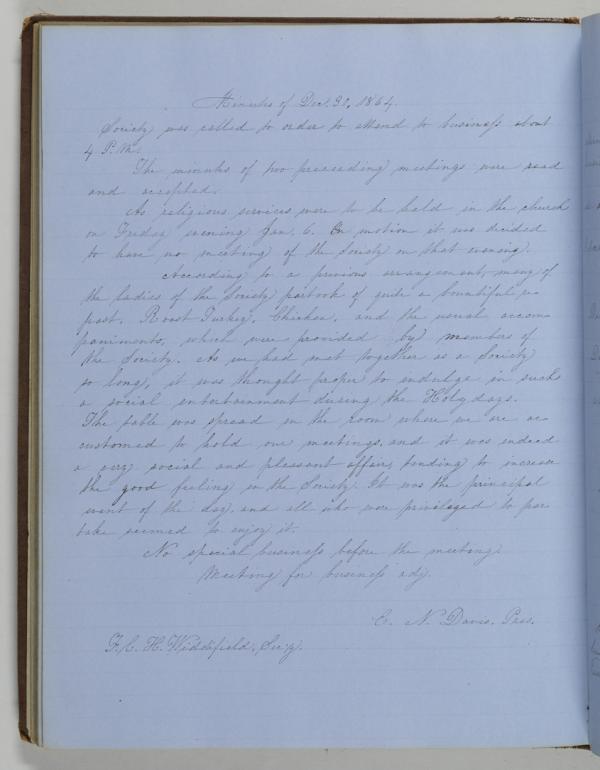 Minutes of Dec. 31, 1864.
Society was called to order to attend to business about
4 P. M.
The minutes of two preceeding meetings were read
and accepted.
As religious services were to be held in the church
on Friday evening Jan. 6. On motion it was decided
to have no meeting of the Society on that evening.
According to a previous arrangement, many of
the ladies of the Society partook of quite a bountiful re-
past. Roast Turkey, Chicken, and the usual accom-
paniments, which were provided by members of
the Society. As we had met together as a Society
so long, it was thought proper to indulge in such
a social entertainment during the Holydays.
The table was spread in the room where we are ac-
customed to hold our meetings, and it was indeed
a very social and pleasant affair, tending to increase
the good feeling in the Society. It was the principal
event of the day, and all who were privileged to par-
take seemed to enjoy it.
No special business before the meeting.
Meeting for business adj.
C. N. Davis, Pres.
H. Widdifield, Sec'y.